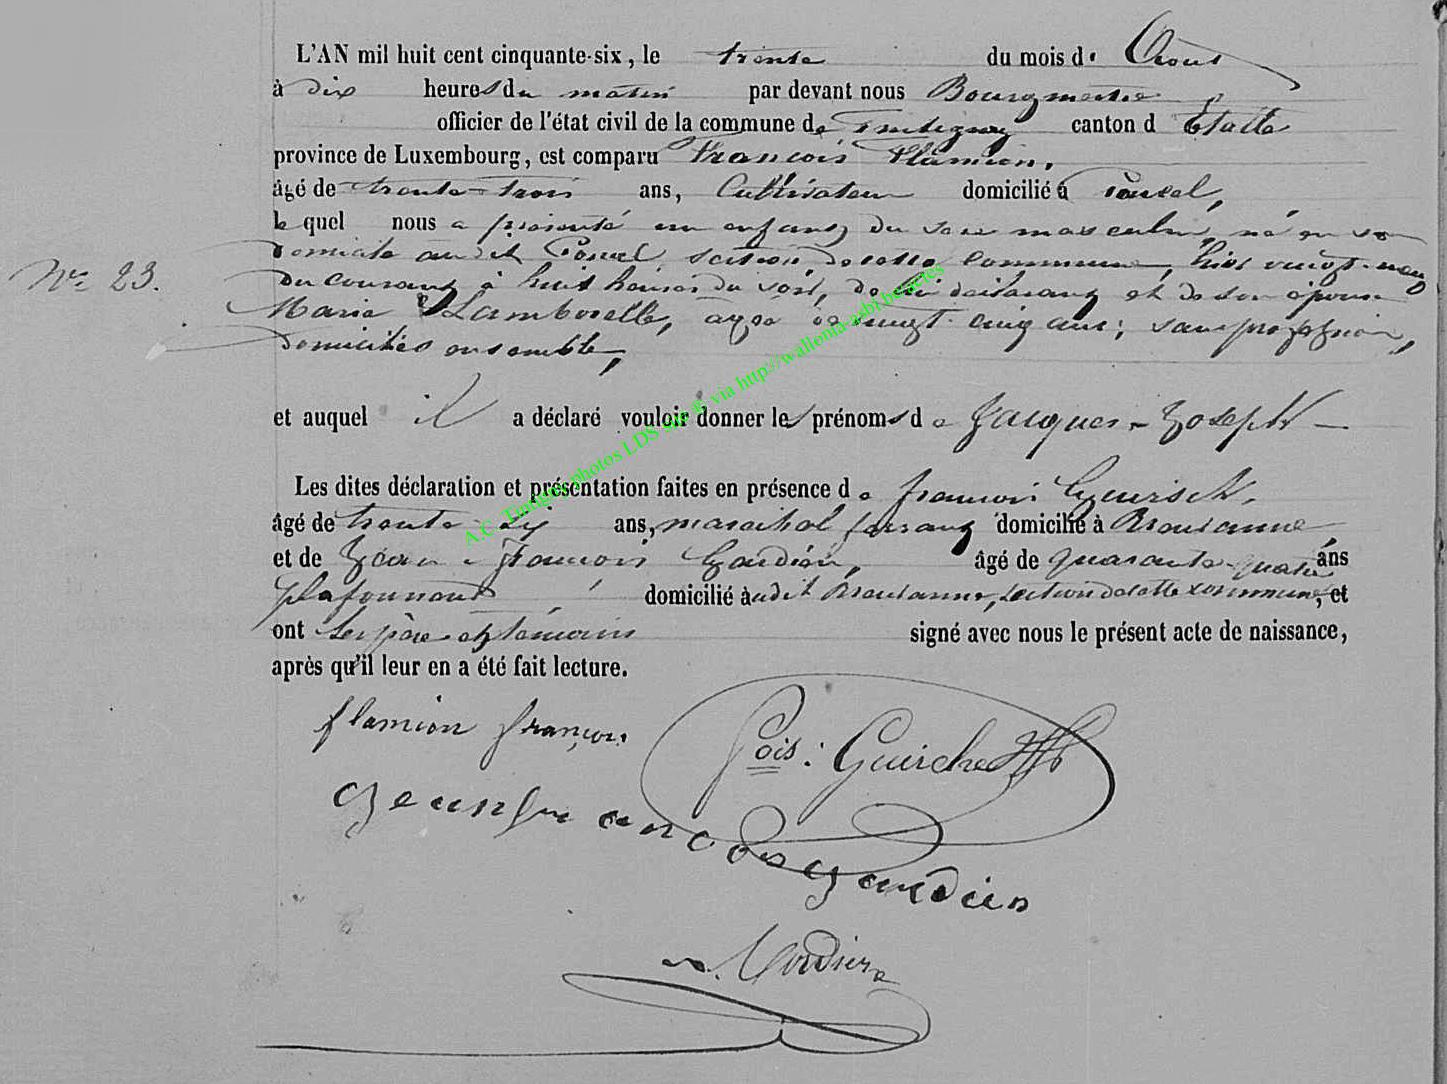 L'AN mil huit cent cinquante-six, le trente du mois d' Aout
à dix heures du matin par devant nous Bourgmestre
officier de l'état civil de la commune de Tintigny canton d' Etalle
province de Luxembourg, est comparu François Flamion,
âgé de trente-trois ans, Cultivateur domicilié à Poncel,
lequel nous a présenté un enfant du sexe masculin, né en son
domicile audit Poncel section de cette commune, hier vingt-neuf
du courant à huit heures du soir, de lui déclarant et de son épouse
N° 23.
Marie Lamborelle, agée de vingt-cinq ans, sans profession,
domiciliés ensemble,
et auquel il a déclaré vouloir donner les prénoms de Jacques-Joseph
Les dites déclaration et présentation faites en présence de françois
âgé de trente ans, maréchal ferrant domicilié à
et de Jean-François Gaudien, âgé de quarante-quatre ans
plafonneur domicilié audit section de cette commune, et
ont les père et témoins signé avec nous le présent acte de naissance,
après qu'il leur en a été fait lecture.
flamion françois
fois: Guirche
Jean gaudien
A.C. Tintigny photos LDS sur © via http://wallonia-asbl.benelux